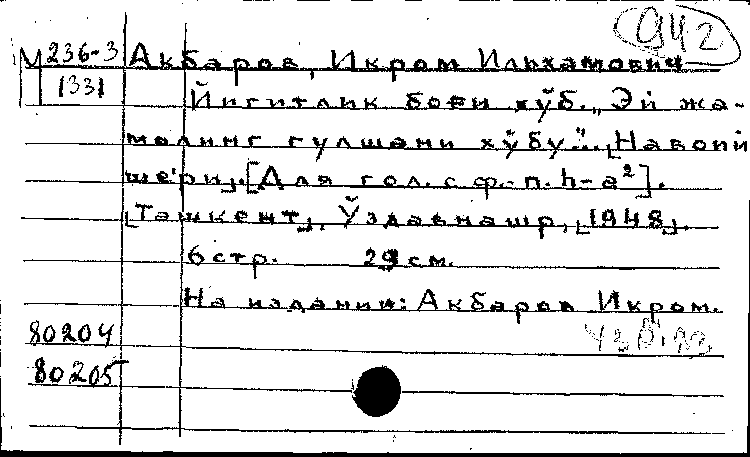 942
М 236-3 Акбаров, Икром Ильхамович
1331
Йигитлик боғи хўб. „Эй жа-
молинг гулшани хўбу...". [Навоий
ше'ри]. [Для гол. с ф.-п. h-a²].
[Ташкент], Ўздавнашр, [1948].
6 стр. 29 см.
На издании: Акбаров Икром.
80204
80205